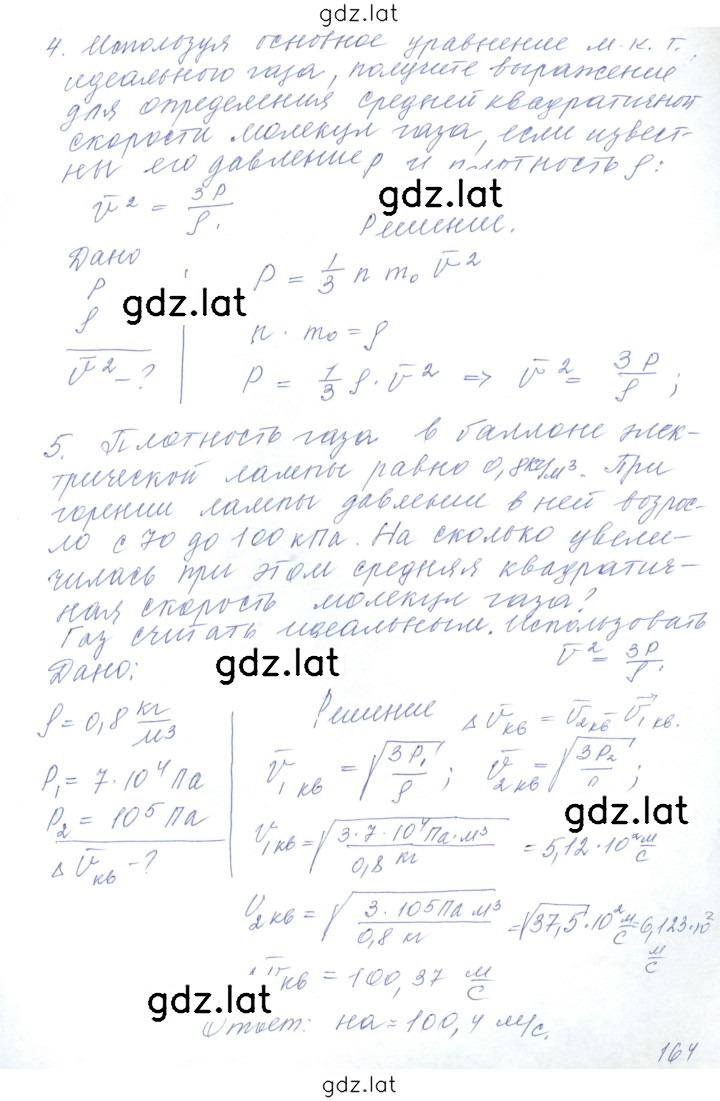 gdz.lat
4. Используя основное уравнение м.к.т.
идеального газа, получите выражение
для определения средней квадратичной
скорости молекул газа, если извест-
ны его давление p и плотность ρ:
v̄² = 3P/ρ.
gdz.lat
Решение.
Дано
P
ρ
v̄² - ?
gdz.lat
P = 1/3 n m₀ v̄²
n · m₀ = ρ
P = 1/3 ρ · v̄² => v̄² = 3P/ρ ;
5. Плотность газа в баллоне элек-
трической лампы равно 0,8 кг/м³. При
горении лампы давлении в ней возрос-
ло с 70 до 100 кПа. На сколько увели-
чилась при этом средняя квадратич-
ная скорость молекул газа?
Газ считать идеальным. Использовать
v̄² = 3P/ρ.
Дано:
gdz.lat
ρ = 0,8 кг/м³
P₁ = 7·10⁴ Па
P₂ = 10⁵ Па
Δ v̄кв - ?
Решение Δ v̄кв = v̄₂кв v̄₁кв.
v̄₁кв = √(3P₁/ρ) ; v̄₂кв = √(3P₂/ ) ;
gdz.lat
v₁кв = √(3·7·10⁴ Па·м³/0,8 кг) = 5,12·10² м/с
v₂кв = √(3·10⁵ Па м³/0,8 кг) = √37,5·10² м/с = 6,123·10² м/с
кв = 100,37 м/с
gdz.lat
Ответ: на = 100,4 м/с.
164
gdz.lat